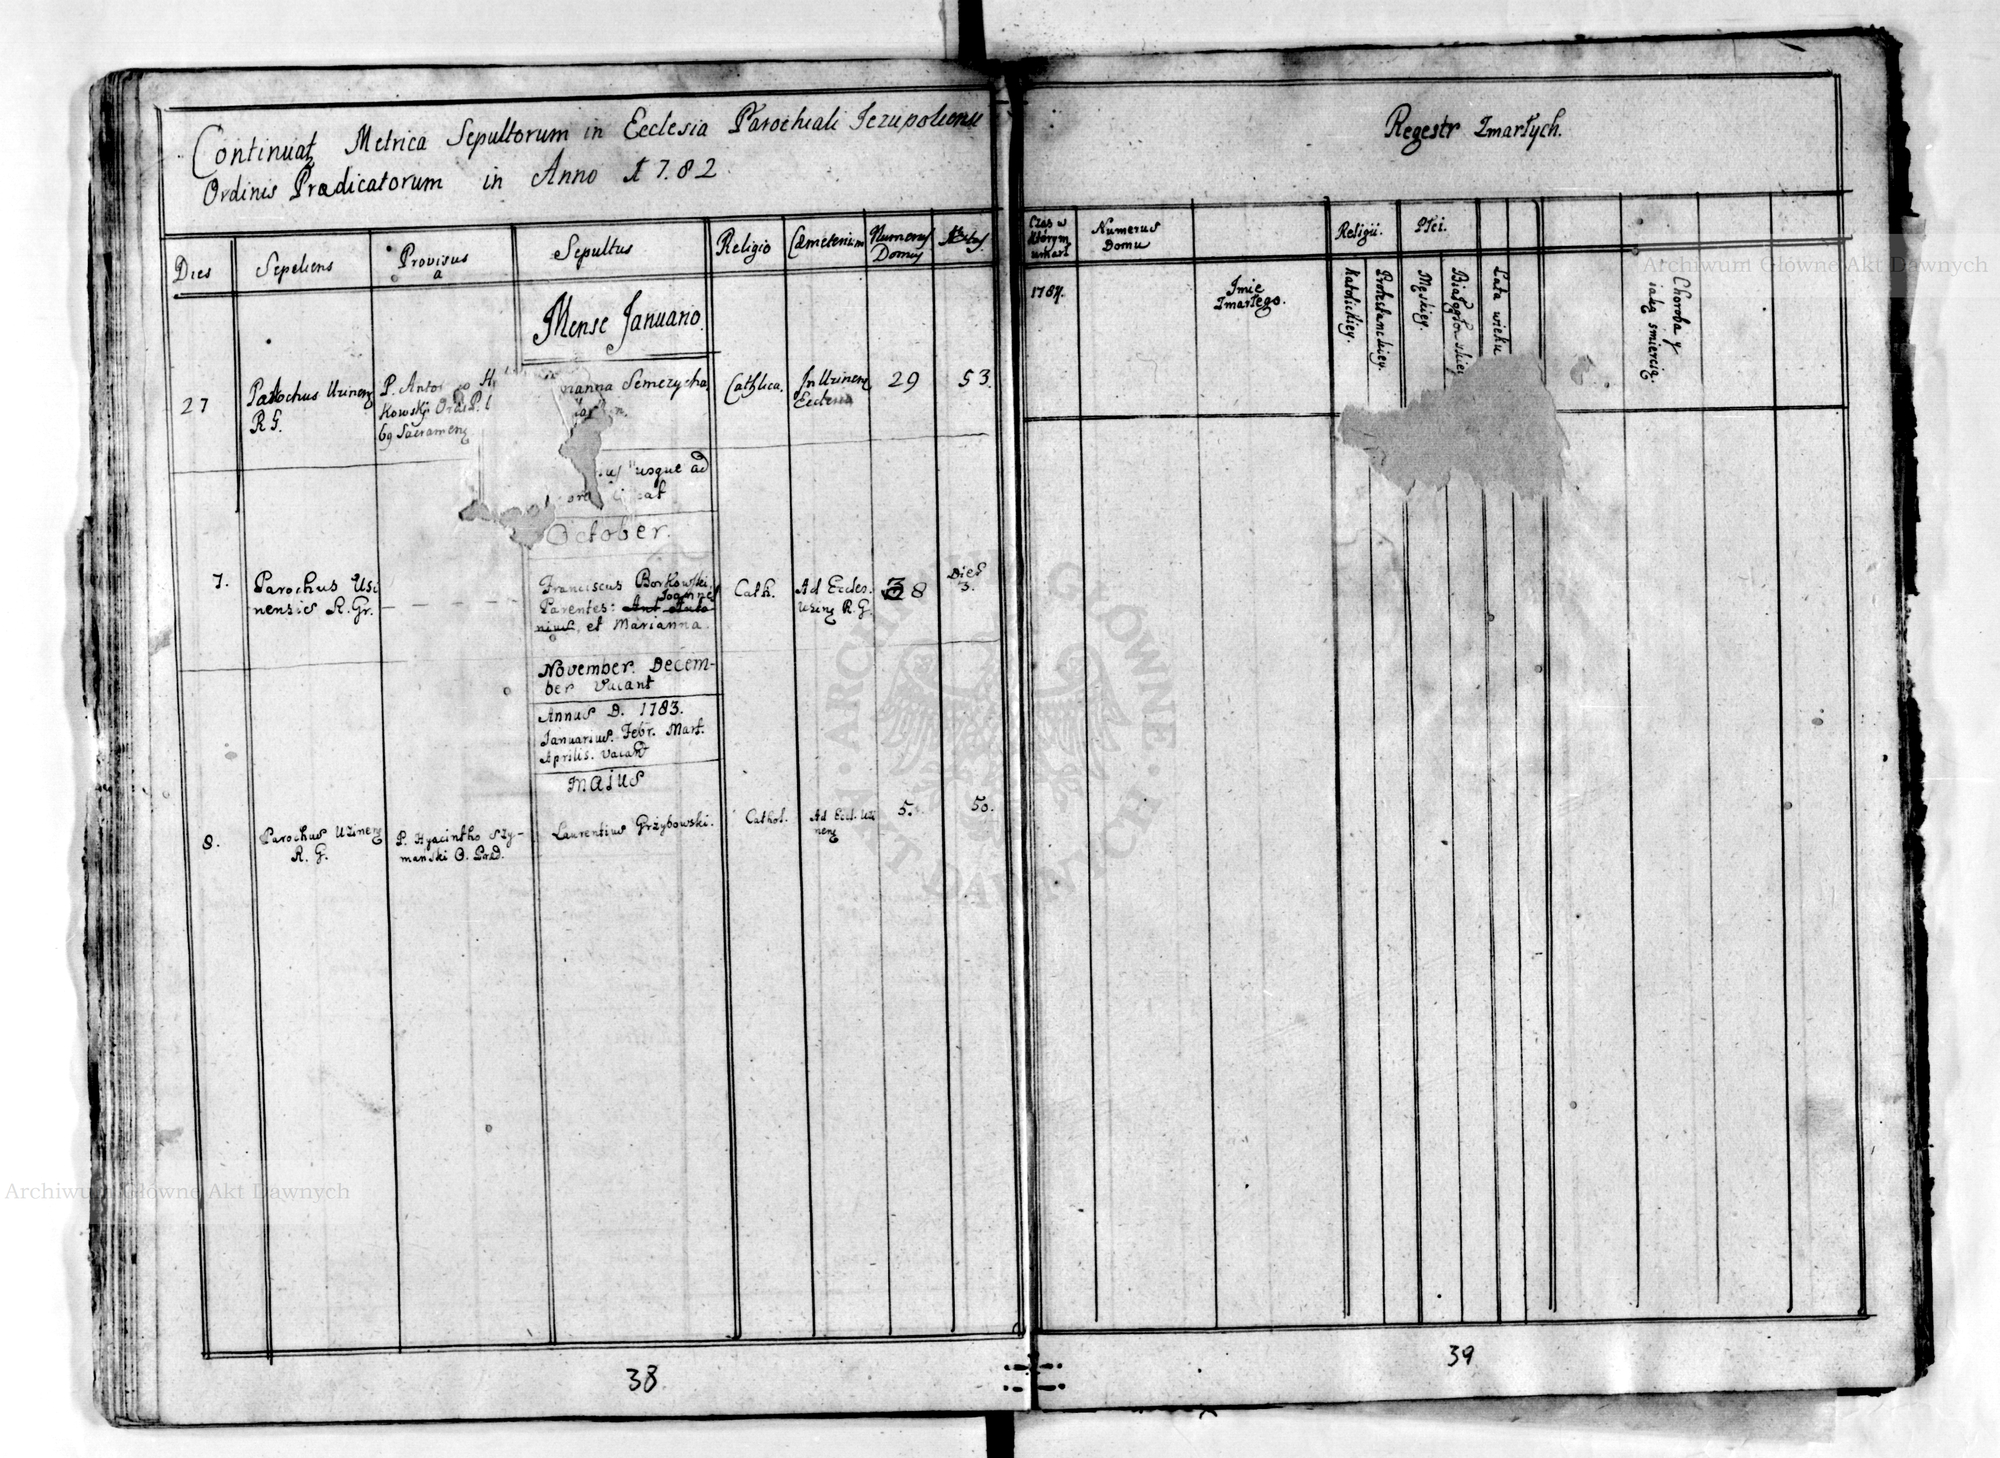 Continuatz Metrica Sepultorum in Ecclesia Parochiali Jezupoliensi
Ordinis Prædicatorum in Anno 1782
Dies
Sepeliens
Provisus
a
Sepultus
Religio
Cæmeterium
Numerus
Domus
Mense Januario.
27
Parochus Uzinenz
R G.
P.
kowski Ord. P.
69 Sacramenz
Semezycha
Cathlica.
In Uzinenz
Ecclesia
29
53.
usque ad
October.
7.
Parochus Usi
nensis R. Gr.
Franciscus Borkowski,
Joannes
Parentes: Ant Anto
nius, et Marianna.
Cath.
Ad Eccles.
Uzinz R. G.
38
Dies
3.
November. Decem-
ber vacant
Annus D. 1783.
Januarius. Febr. Mart.
Aprilis. vacant
Maius
8.
Parochus Uzinenz
R. G.
P. Hyacintho Szy-
manski O. Præd.
Laurentius Grzybowski.
Cathol.
Ad Eccl. Uzi
nenz
5.
50.
38
Regestr Zmarłych.
Czas w
Którym
umarł
Numerus
Domu
Religii.
Płci.
1784.
Jmie
Zmarłego.
Katolickiey.
Protestanckiey.
Męskiey.
Białogłowskiey
Lata wieku
Choroba y
iaką śmiercią.
39
Archiwum Główne Akt Dawnych
Archiwum Główne Akt Dawnych
ARCHIWUM GŁÓWNE
AKT DAWNYCH